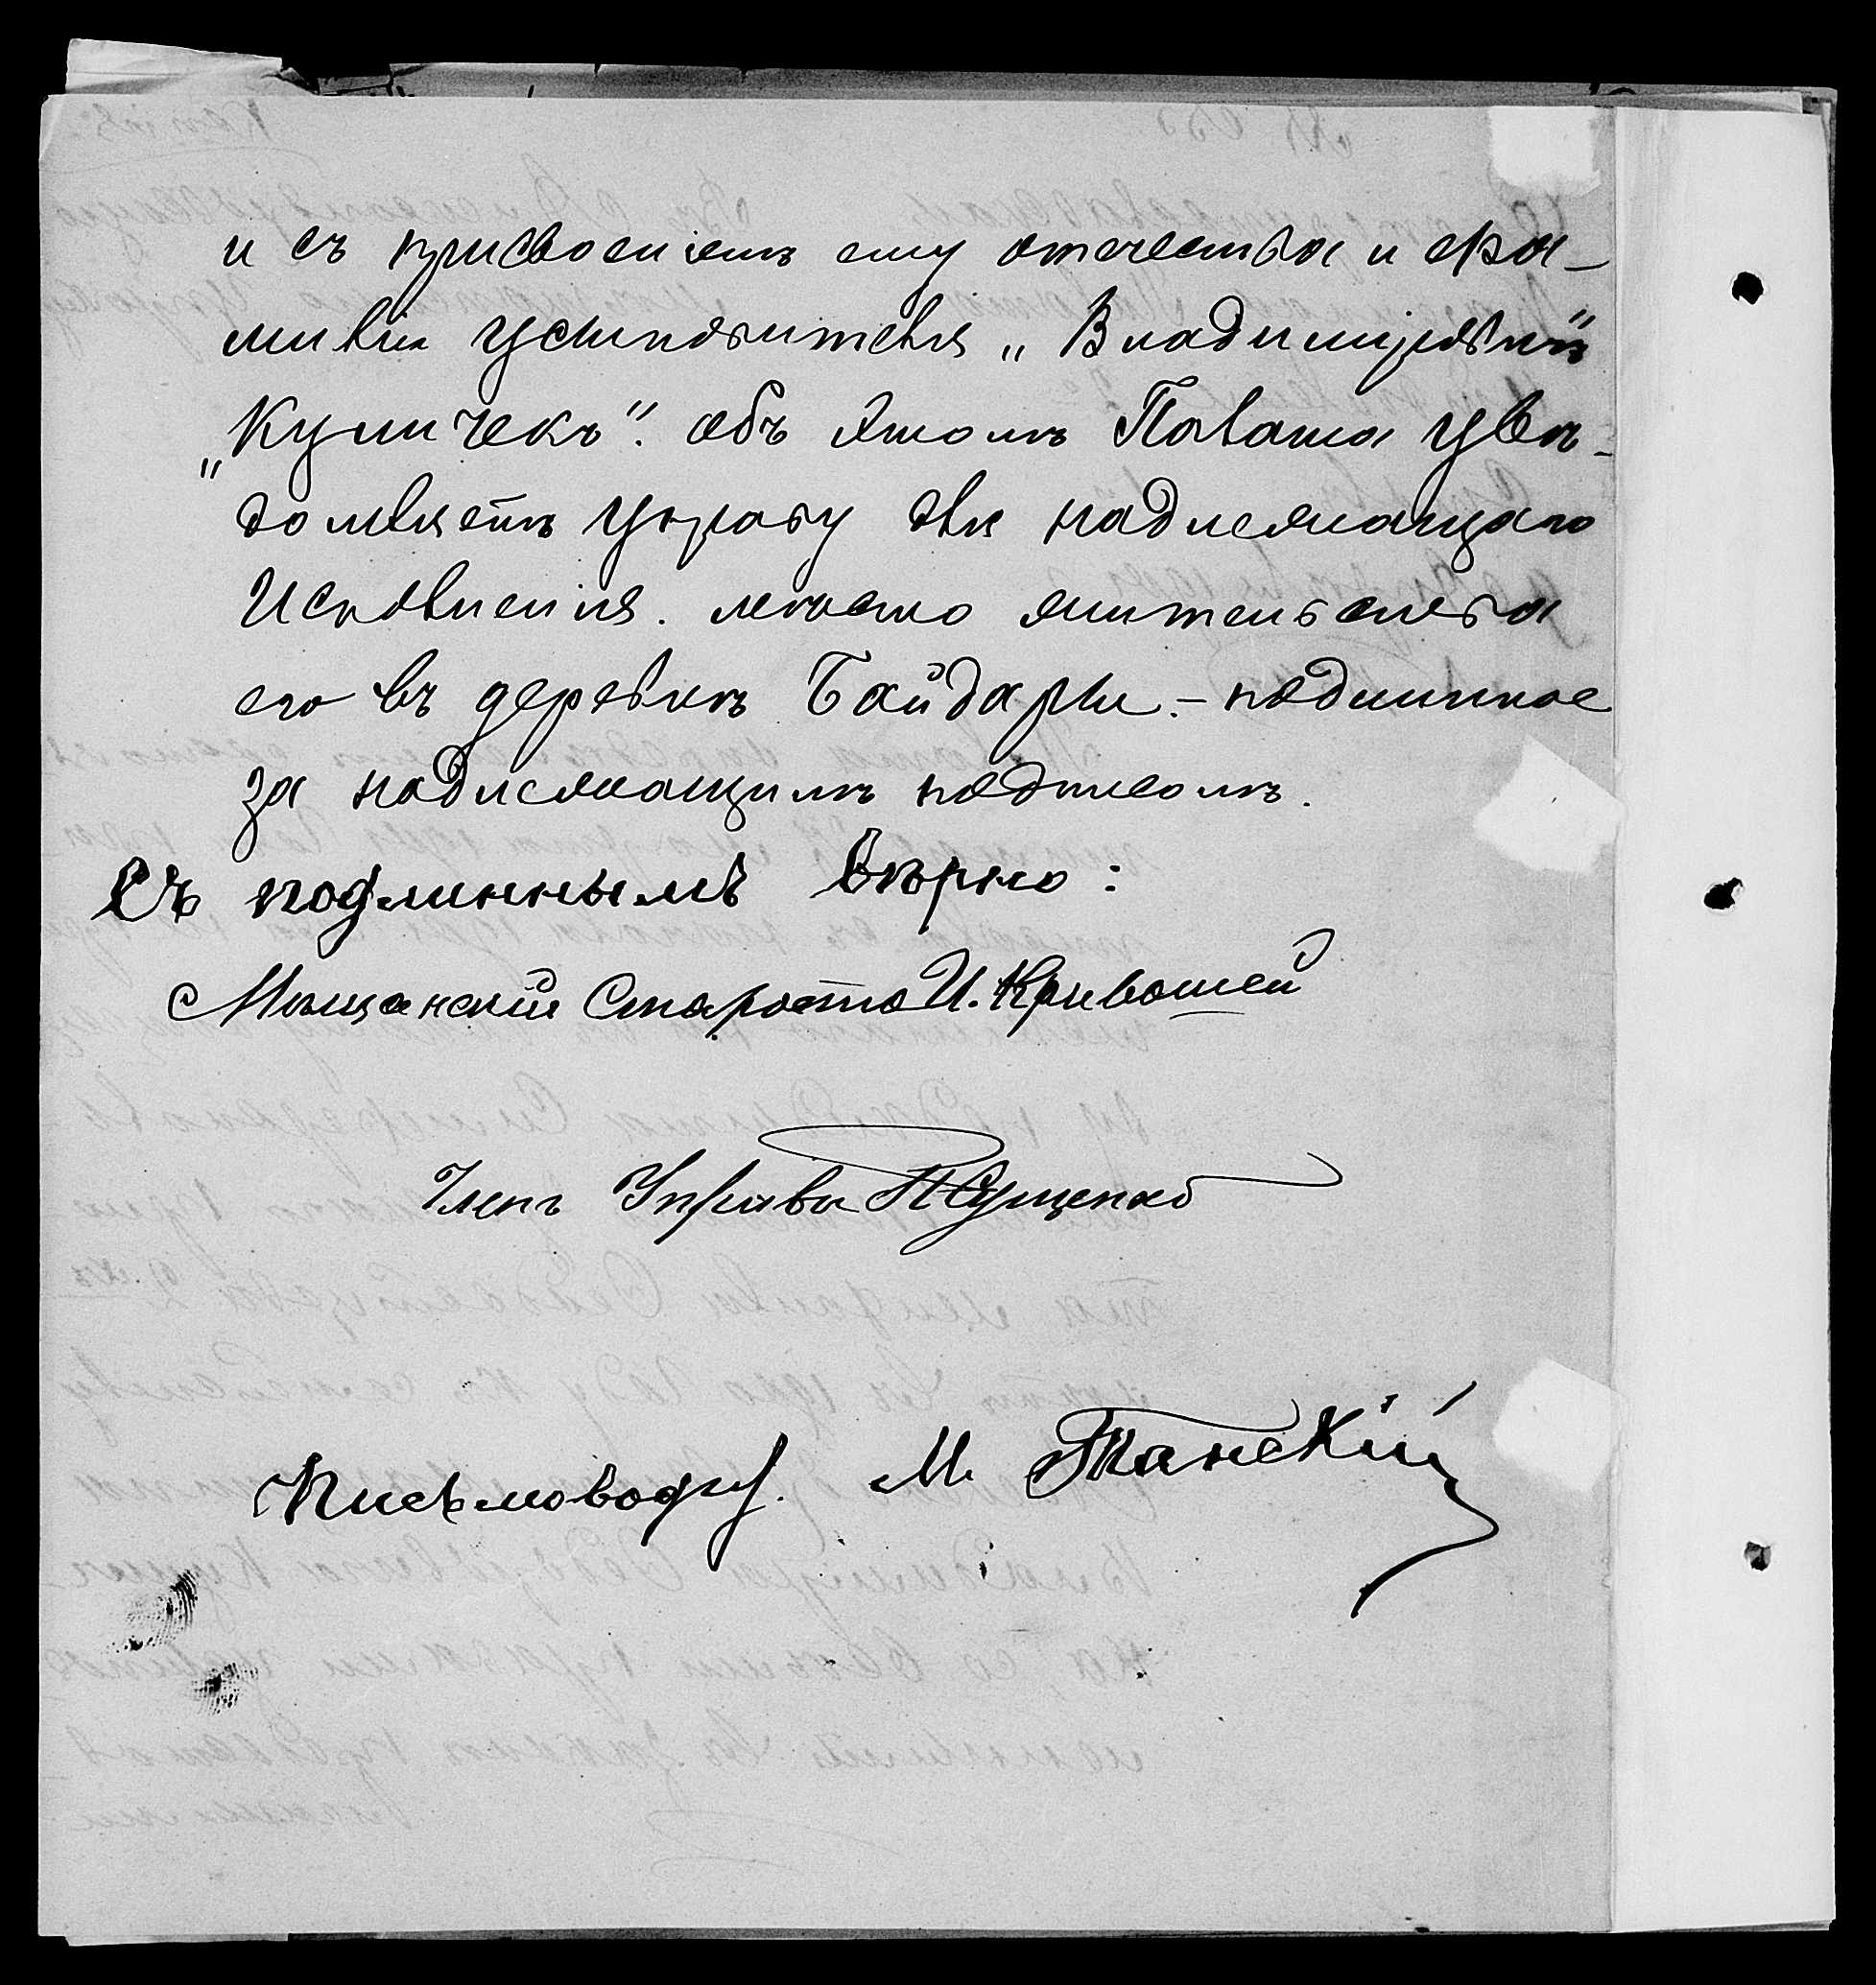 и съ присвоеніемъ ему отечества и фа-
миліи усыновителя „Владиміровъ"
„Кумичекъ". объ этомъ Палата уве-
домляетъ управу для надлежащаго
Исполненія. место жительства
его въ деревне Байдары. - подлинное
за надлежащимъ подписомъ.
Съ подлиннымъ верно:
Мещанскій Староста И. Кривошей
Членъ Управы
Письмоводи. М.